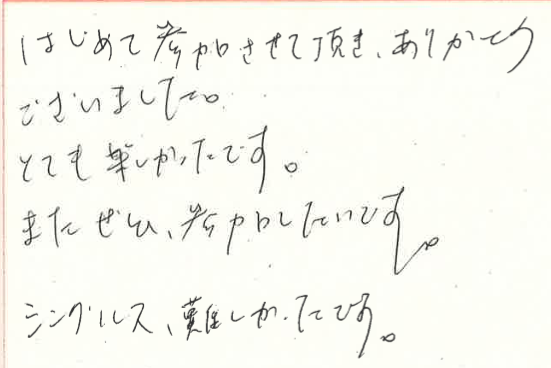 はじめて参加させて頂き、ありがとう
ございました。
とても楽しかったです。
またぜひ、参加したいです。
シングルス、難しかったです。